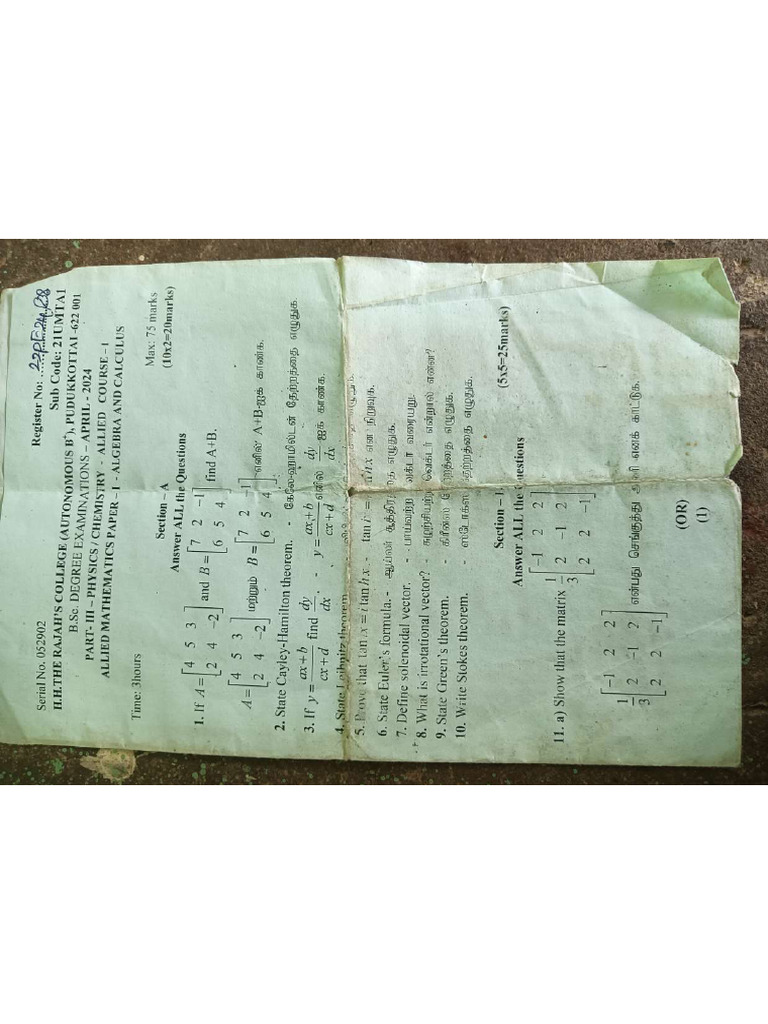 Serial No. 052902
Register No: 22PE2428
Sub Code: 21UMTA1
H.H.THE RAJAH'S COLLEGE (AUTONOMOUS B⁺), PUDUKKOTTAI -622 001
B.Sc. DEGREE EXAMINATIONS – APRIL - 2024
PART- III – PHYSICS / CHEMISTRY - ALLIED COURSE – I
ALLIED MATHEMATICS PAPER – I - ALGEBRA AND CALCULUS
Time: 3hours Max: 75 marks
Section – A (10x2=20marks)
Answer ALL the Questions
1. If A = [4 5 3; 2 4 −2] and B = [7 2 −1; 6 5 4] find A+B.
A = [4 5 3; 2 4 −2] மற்றும் B = [7 2 −1; 6 5 4] எனில் A+B-ஐக் காண்க.
2. State Cayley-Hamilton theorem. - கேலே-ஹாமில்டன் தேற்றத்தை எழுதுக
3. If y = (ax+b)/(cx+d) find dy/dx. - y = (ax+b)/(cx+d) எனில் dy/dx ஐக் காண்க.
4. State Leibnitz theorem
5. Prove that tan ix = i tan hx - tan i = i tan hx என நிறுவுக.
6. State Euler's formula. - ஆய்லர் சூத்திரத்தை எழுதுக.
7. Define solenoidal vector. - பாய்வற்ற வெக்டர் வரையறு.
8. What is irrotational vector? - சுழற்சியற்ற வெக்டர் என்றால் என்ன?
9. State Green's theorem. - கிரீன்ஸ் தேற்றத்தை எழுதுக.
10. Write Stokes theorem. - ஸ்டோக்ஸ் தேற்றத்தை எழுதுக.
Section – (5x5=25marks)
Answer ALL the Questions
11. a) Show that the matrix 1/3 [−1 2 2; 2 −1 2; 2 2 −1]
1/3 [−1 2 2; 2 −1 2; 2 2 −1] என்பது செங்குத்து அணி எனக் காட்டுக.
(OR)
(1)